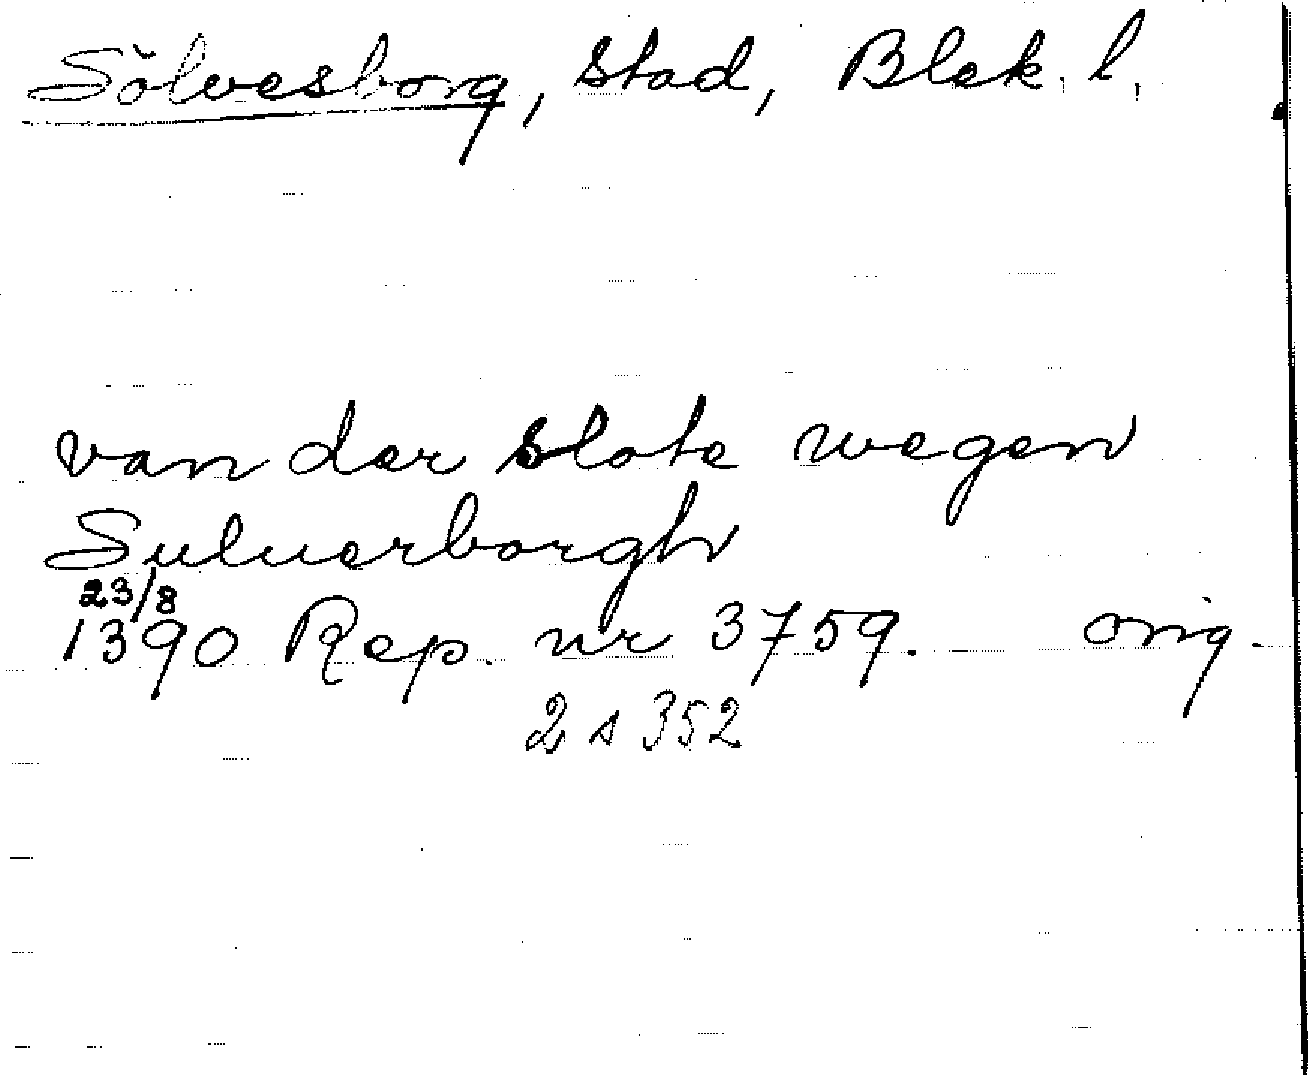 Sölvesborg, stad, Blek. l.
van der slote wegen
Suluerborgh
23/8
1390 Rep. nr 3759. orig.
2 s 352